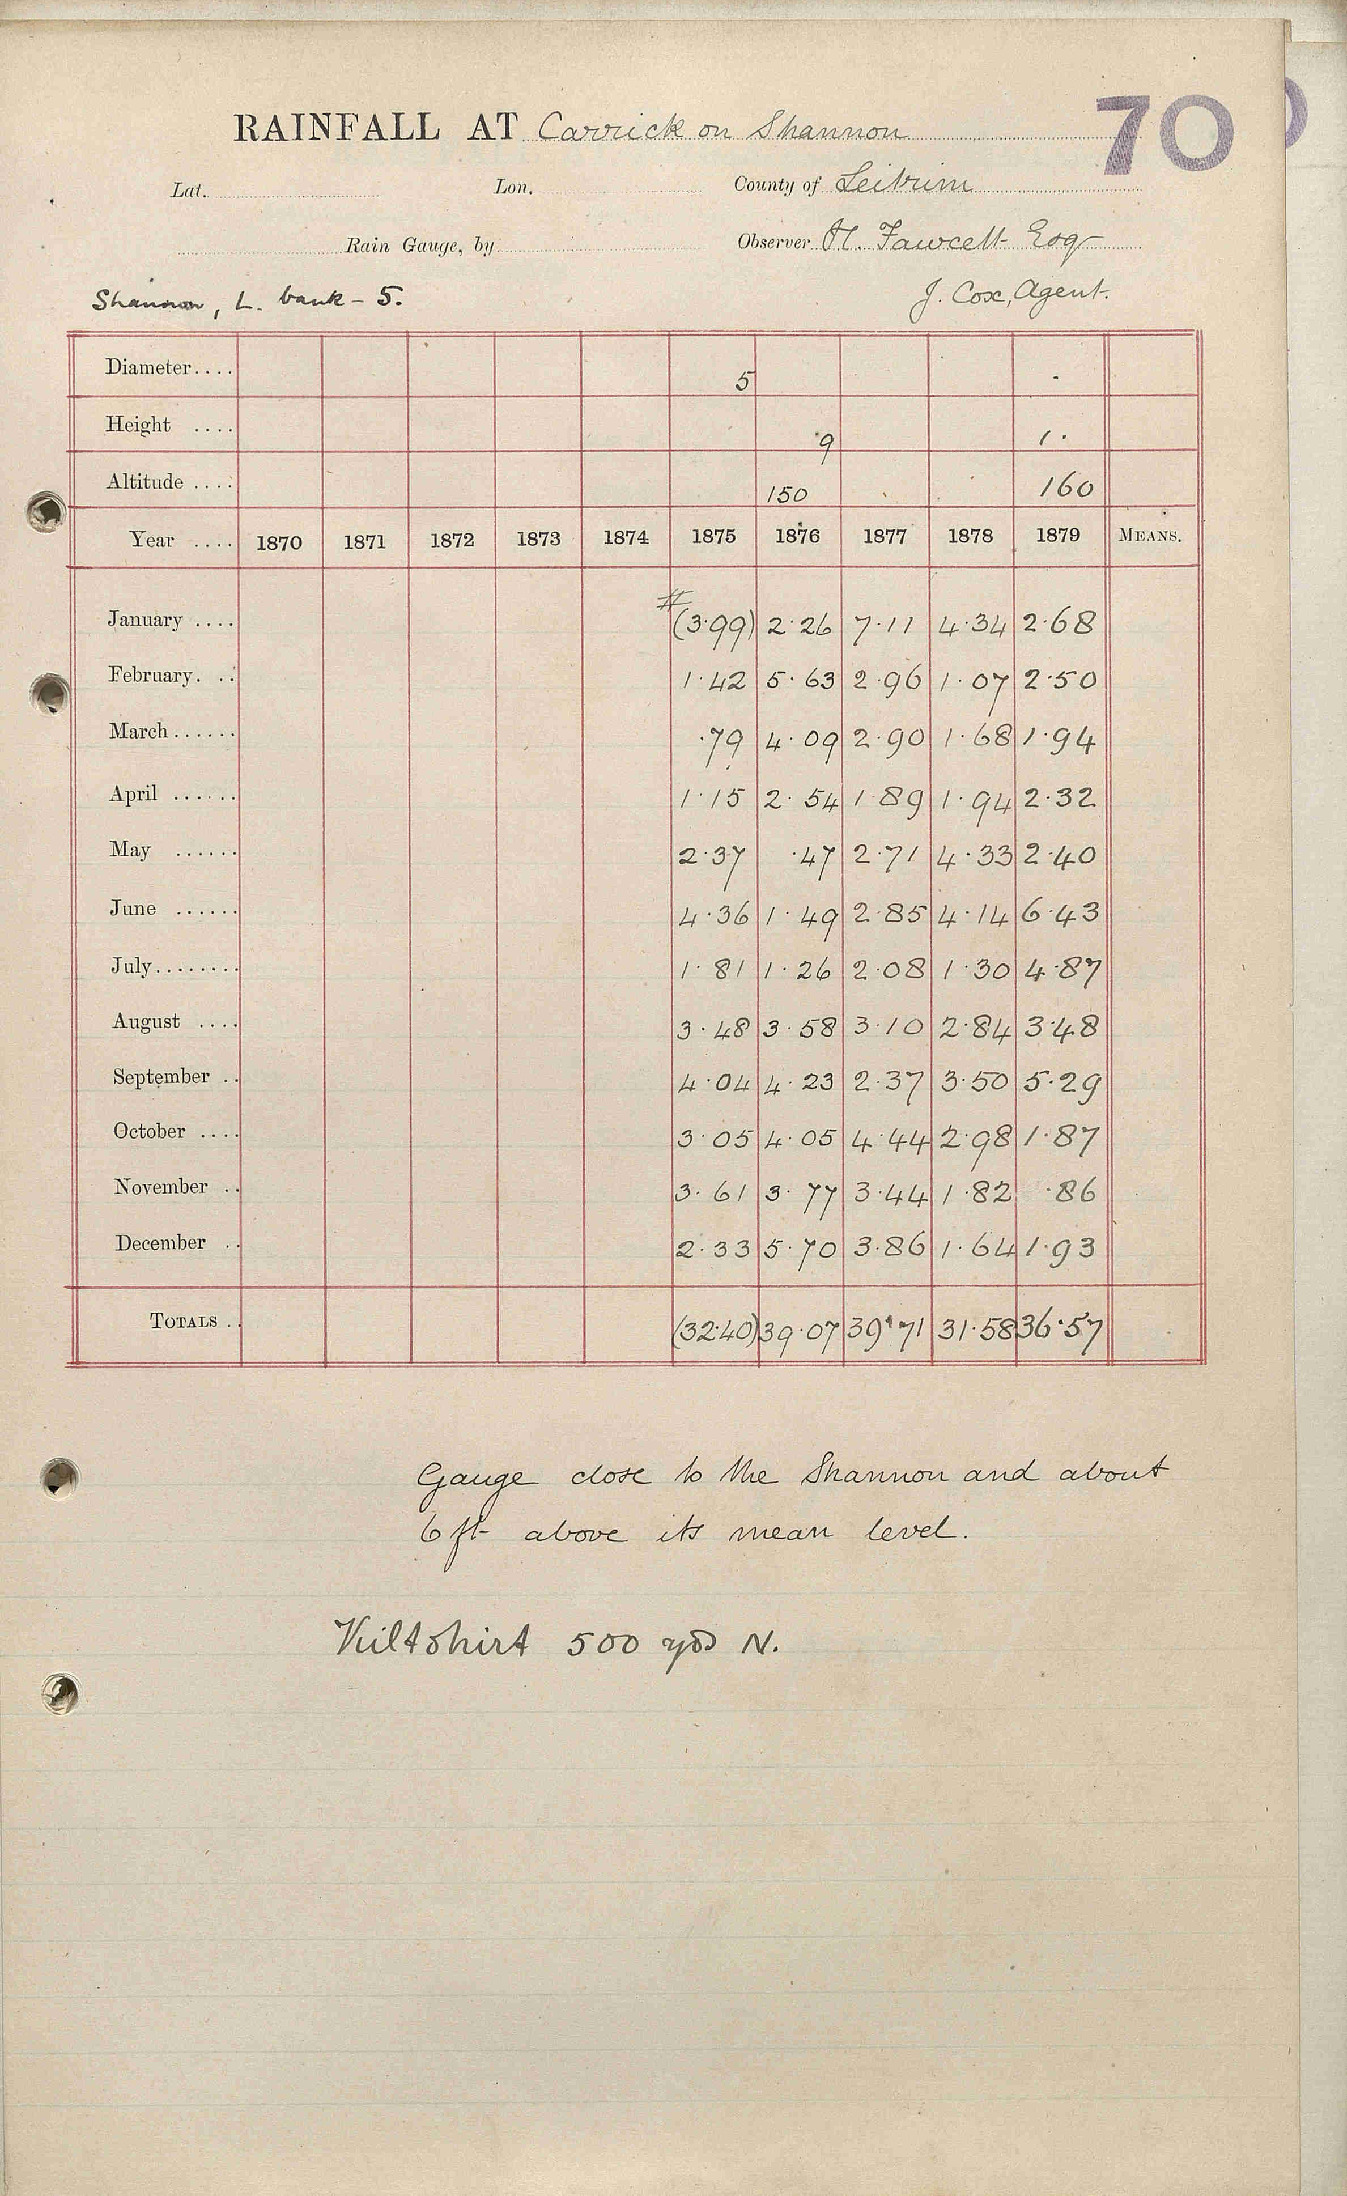 70
RAINFALL AT Carrick on Shannon
Lat. Lon. County of Leitrim
Rain Gauge, by Observer H. Fawcett Esq
Shannon, L. bank - 5. J. Cox, Agent.
Diameter.... 5
Height .... 9 1.
Altitude .... 150 160
Year .... 1870 1871 1872 1873 1874 1875 1876 1877 1878 1879 MEANS.
January .... #(3.99) 2.26 7.11 4.34 2.68
February. .. 1.42 5.63 2.96 1.07 2.50
March...... .79 4.09 2.90 1.68 1.94
April ...... 1.15 2.54 1.89 1.94 2.32
May ...... 2.37 .47 2.71 4.33 2.40
June ...... 4.36 1.49 2.85 4.14 6.43
July........ 1.81 1.26 2.08 1.30 4.87
August .... 3.48 3.58 3.10 2.84 3.48
September .. 4.04 4.23 2.37 3.50 5.29
October .... 3.05 4.05 4.44 2.98 1.87
November .. 3.61 3.77 3.44 1.82 .86
December .. 2.33 5.70 3.86 1.64 1.93
TOTALS .. (32.40) 39.07 39.71 31.58 36.57
Gauge close to the Shannon and about
6 ft above its mean level.
Kiltshirt 500 yds N.